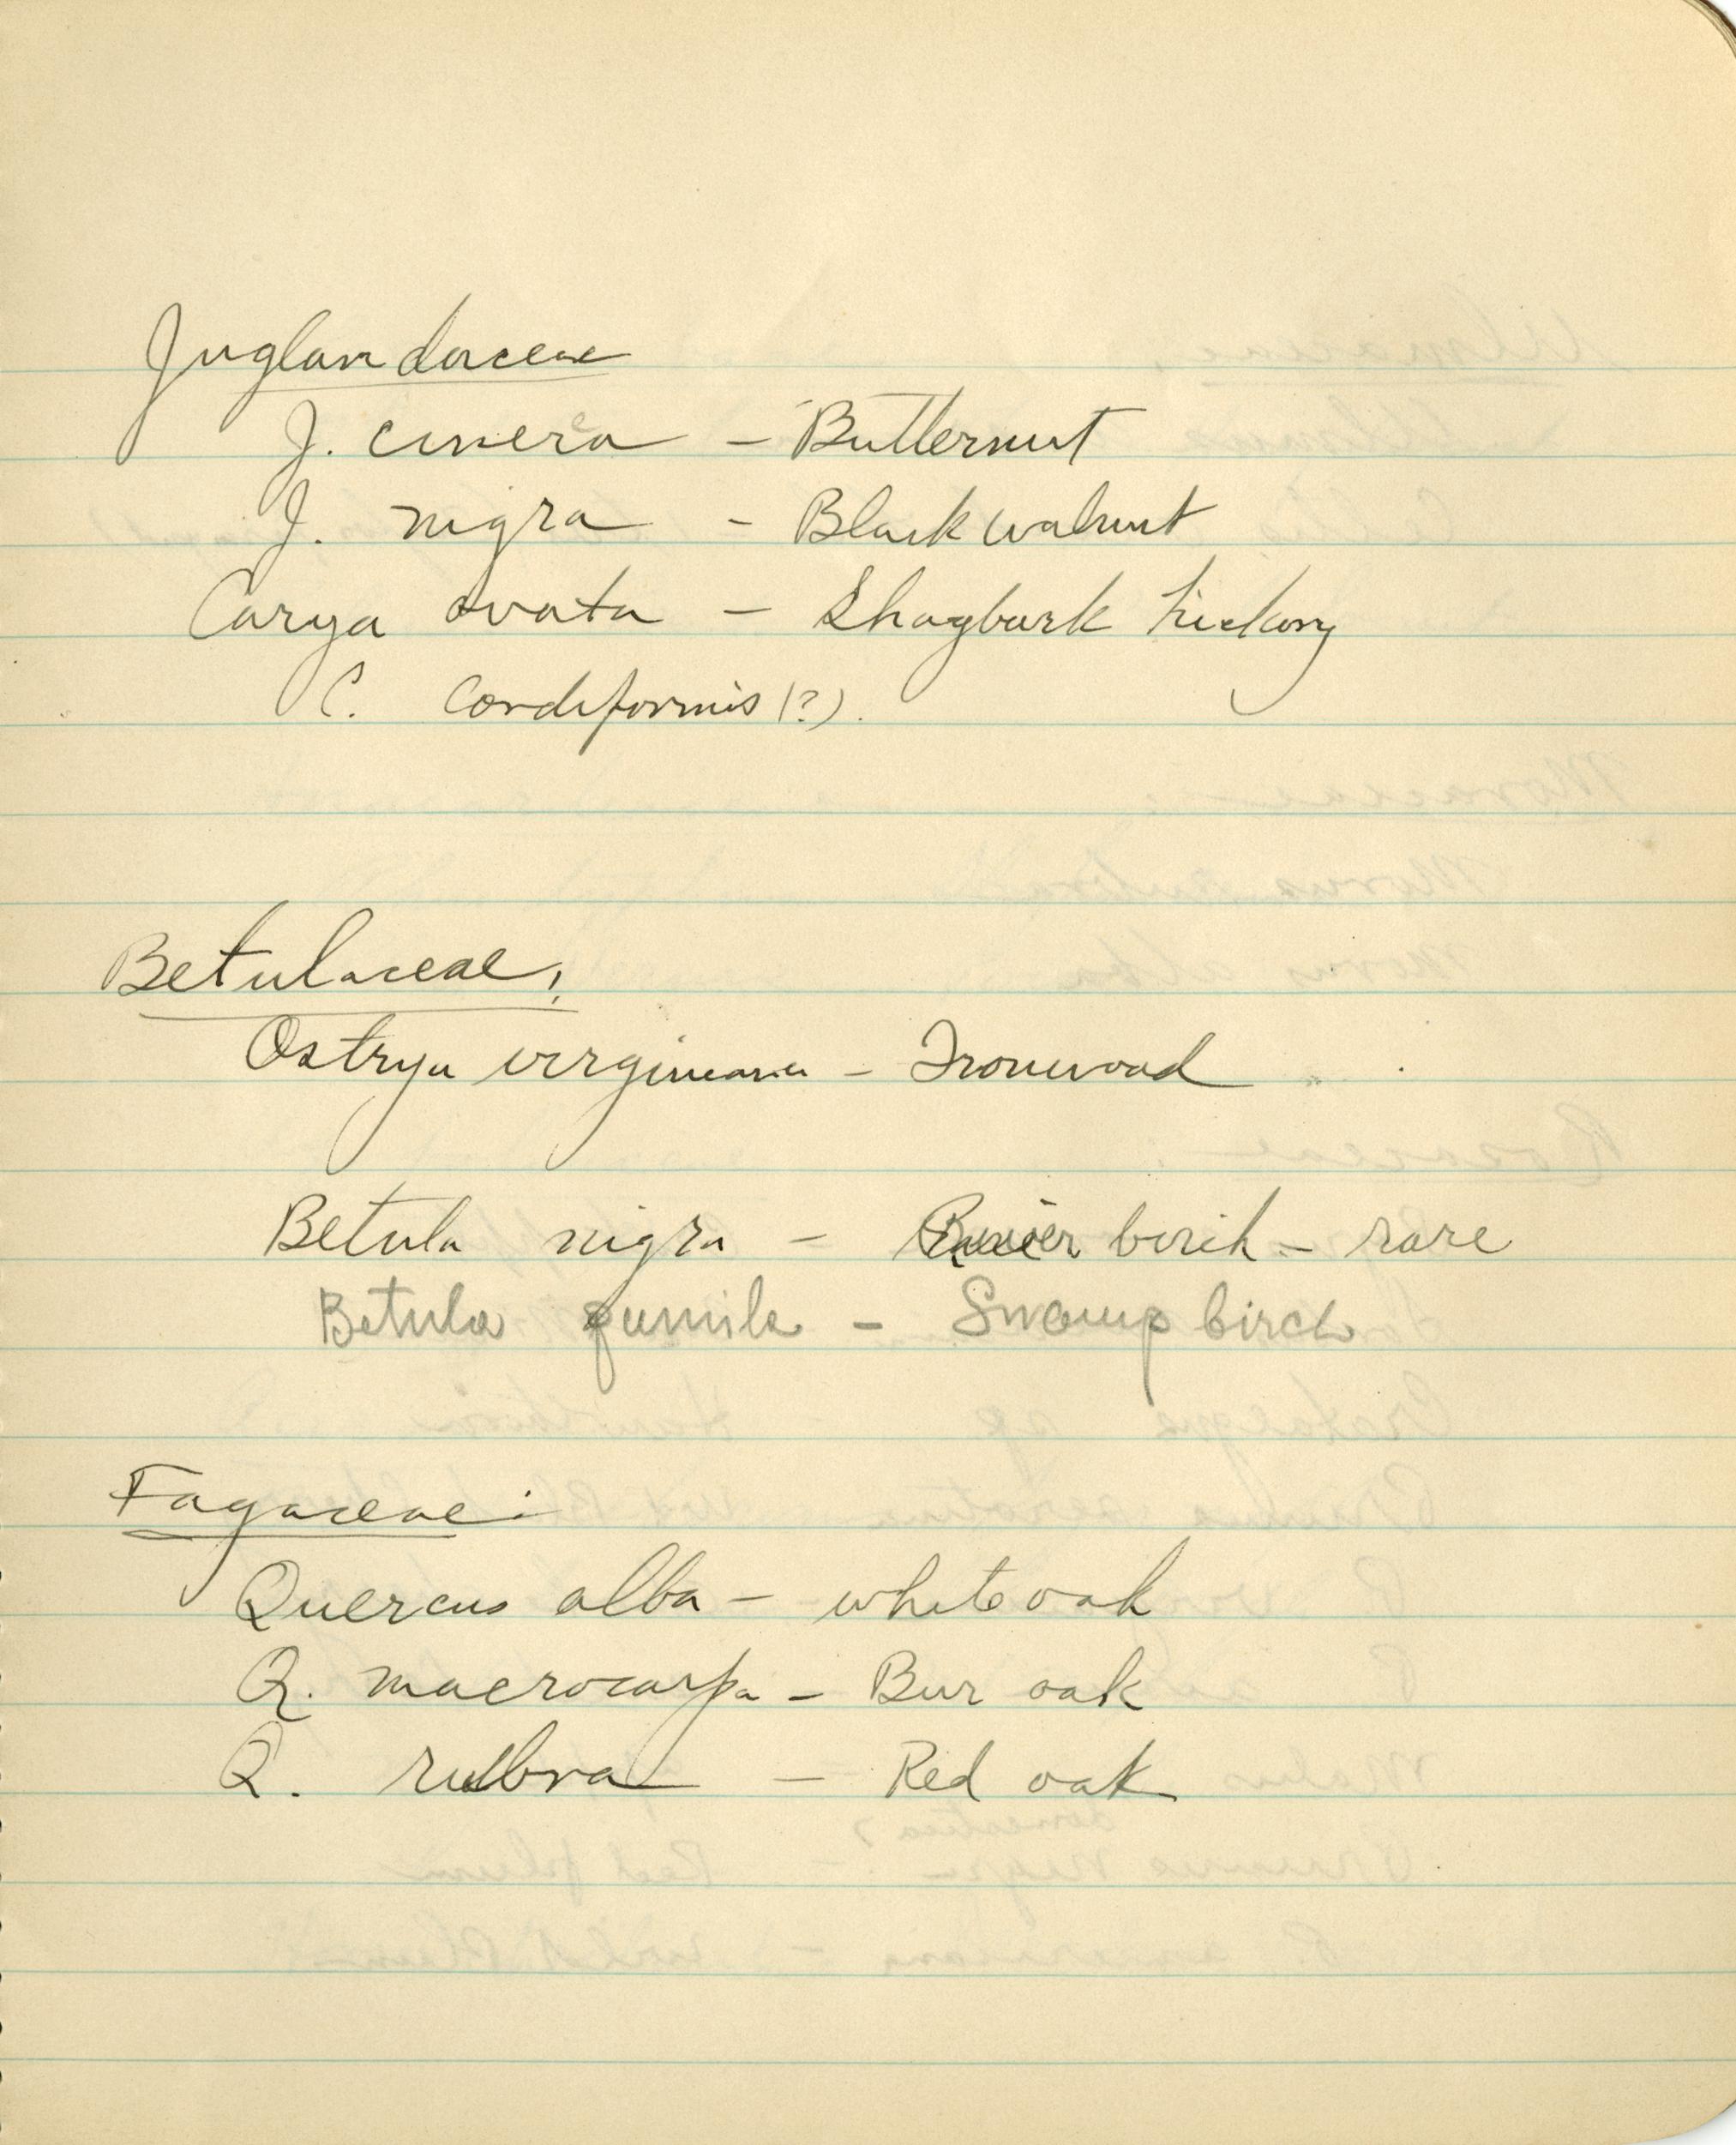 Juglandaceae
J. cinera - Butternut
J. nigra - Black walnut
Carya ovata - Shagbark hickory
C. Cordiformis (?).
Betulaceae:
Ostrya virginiana - Ironwood
Betula nigra - River birch - rare
Betula pumila - Swamp birch
Fagaceae:
Quercus alba - white oak
Q. macrocarpa - Bur oak
Q. rubra - Red oak